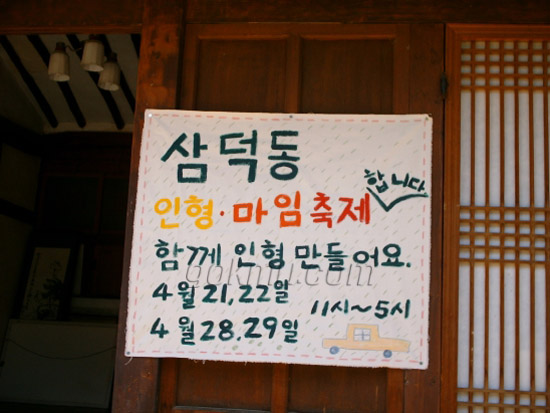 삼덕동
인형·마임축제 합니다.
함께 인형 만들어요.
4월21,22일 11시~5시
4월28.29일